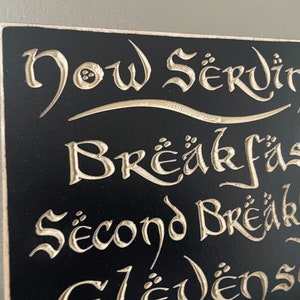 Now Servin
Breakfas
Second Break
Elevens